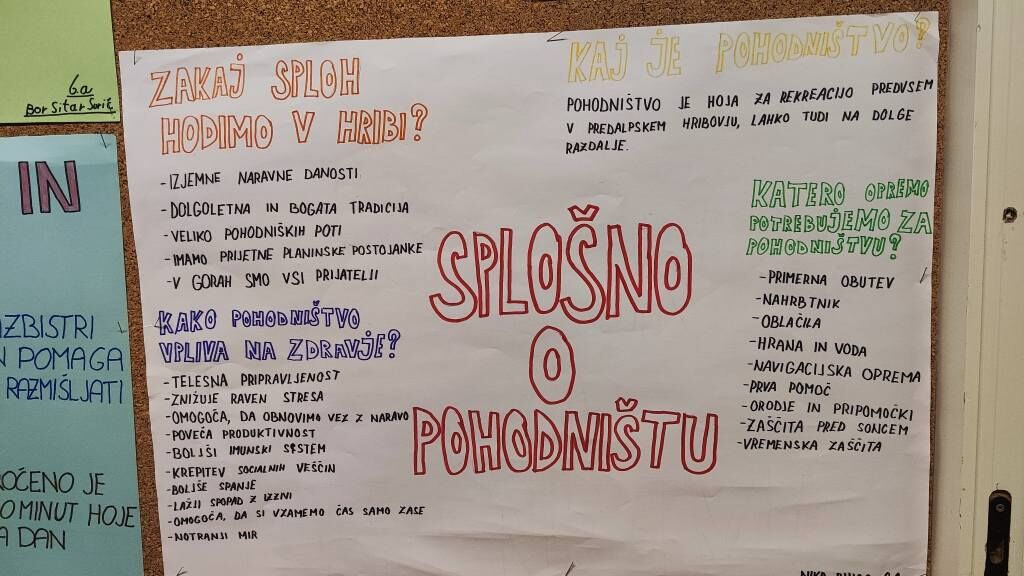 6.a
Bor Sitar Savić
IN
ZBISTRI
POMAGA
RAZMIŠLJATI
OČENO JE
MINUT HOJE
DAN
ZAKAJ SPLOH
HODIMO V HRIBI?
-IZJEMNE NARAVNE DANOSTI
-DOLGOLETNA IN BOGATA TRADICIJA
-VELIKO POHODNIŠKIH POTI
-IMAMO PRIJETNE PLANINSKE POSTOJANKE
-V GORAH SMO VSI PRIJATELJI
KAKO POHODNIŠTVO
VPLIVA NA ZDRAVJE?
-TELESNA PRIPRAVLJENOST
-ZNIŽUJE RAVEN STRESA
-OMOGOČA, DA OBNOVIMO VEZ Z NARAVO
-POVEČA PRODUKTIVNOST
-BOLJŠI IMUNSKI SISTEM
-KREPITEV SOCIALNIH VEŠČIN
-BOLJŠE SPANJE
-LAŽJI SPOPAD Z IZZIVI
-OMOGOČA, DA SI VZAMEMO ČAS SAMO ZASE
-NOTRANJI MIR
SPLOŠNO
O
POHODNIŠTU
KAJ JE POHODNIŠTVO?
POHODNIŠTVO JE HOJA ZA REKREACIJO PREDVSEM
V PREDALPSKEM HRIBOVJU, LAHKO TUDI NA DOLGE
RAZDALJE.
KATERO OPREMO
POTREBUJEMO ZA
POHODNIŠTVU?
-PRIMERNA OBUTEV
-NAHRBTNIK
-OBLAČILA
-HRANA IN VODA
-NAVIGACIJSKA OPREMA
-PRVA POMOČ
-ORODJE IN PRIPOMOČKI
-ZAŠČITA PRED SONCEM
-VREMENSKA ZAŠČITA